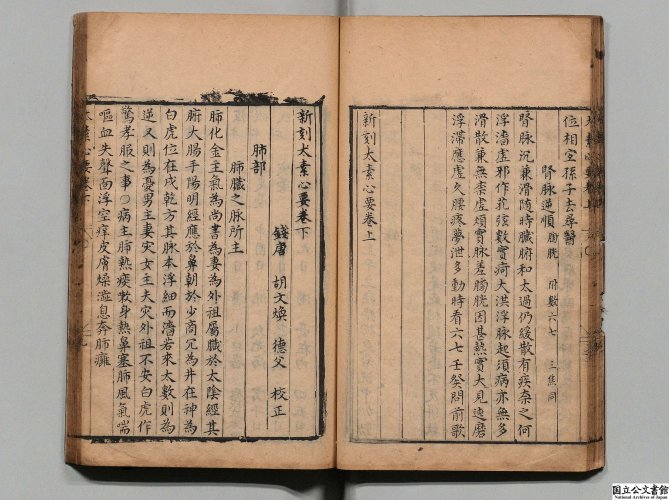 位相空孫子去尋醫
腎脉逆順 膀胱 附數六七 三焦同
腎脉沉兼滑随時臟腑和太過仍緩散有疾柰之何
浮濇虚邪作芤弦數實痾大洪浮脉起須病亦無多
滑散兼無柰虚煩實脉差膓胱因甚熱實大見速磨
浮滞應虚久腰疼夢泄多動時看六七壬癸問前歌
新刻太素心要卷上
新刻太素心要卷下
錢唐 胡文煥 德父 校正
肺部
肺臟之脉所主
肺化金主氣為尚書為妻為外祖屬職於太陰經其
腑大腸手陽明經應於鼻朝於少商冗為井在神為
白虎位在戌乾方其脉本浮細而濇若來太數則為
逆又則為憂男主妻灾女主夫灾外祖不安白虎作
驚孝服之事の病主肺熱痰欶身熱鼻塞肺風氣喘
嘔血失聲面浮空痒皮膚燥澁息奔肺癰
國立公文書館
National Archives of Japan